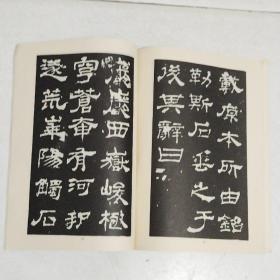 載原本所由銘
勒斯石垂之于
後其辭曰
巖巖西嶽峻極
穹蒼奄有河朔
遂荒華陽觸石